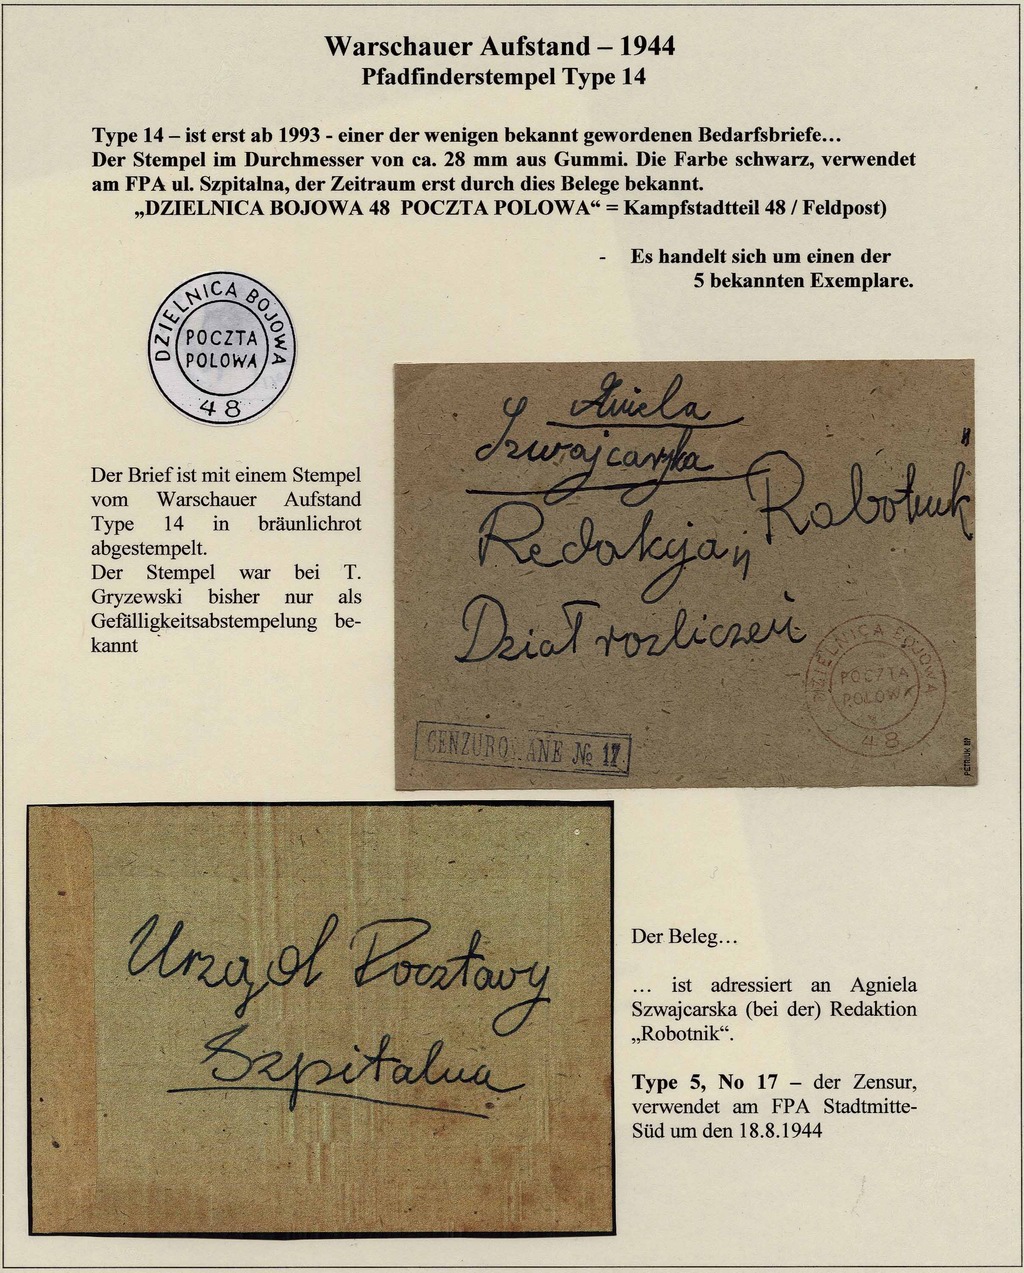 Warschauer Aufstand – 1944
Pfadfinderstempel Type 14
Type 14 – ist erst ab 1993 - einer der wenigen bekannt gewordenen Bedarfsbriefe…
Der Stempel im Durchmesser von ca. 28 mm aus Gummi. Die Farbe schwarz, verwendet
am FPA ul. Szpitalna, der Zeitraum erst durch dies Belege bekannt.
„DZIELNICA BOJOWA 48 POCZTA POLOWA“ = Kampfstadtteil 48 / Feldpost)
- Es handelt sich um einen der
5 bekannten Exemplare.
DZIELNICA BOJOWA
POCZTA
POLOWA
48
Der Brief ist mit einem Stempel
vom Warschauer Aufstand
Type 14 in bräunlichrot
abgestempelt.
Der Stempel war bei T.
Gryzewski bisher nur als
Gefälligkeitsabstempelung be-
kannt
Aniela
Szwajcarska
Redakcja „Robotnik"
Dział rozliczeń
DZIELNICA BOJOWA
POCZTA
POLOWA
48
CENZUROWANE № 17.
PETRIUK BP
Urząd Pocztowy
Szpitalna
Der Beleg…
… ist adressiert an Agniela
Szwajcarska (bei der) Redaktion
„Robotnik“.
Type 5, No 17 – der Zensur,
verwendet am FPA Stadtmitte-
Süd um den 18.8.1944